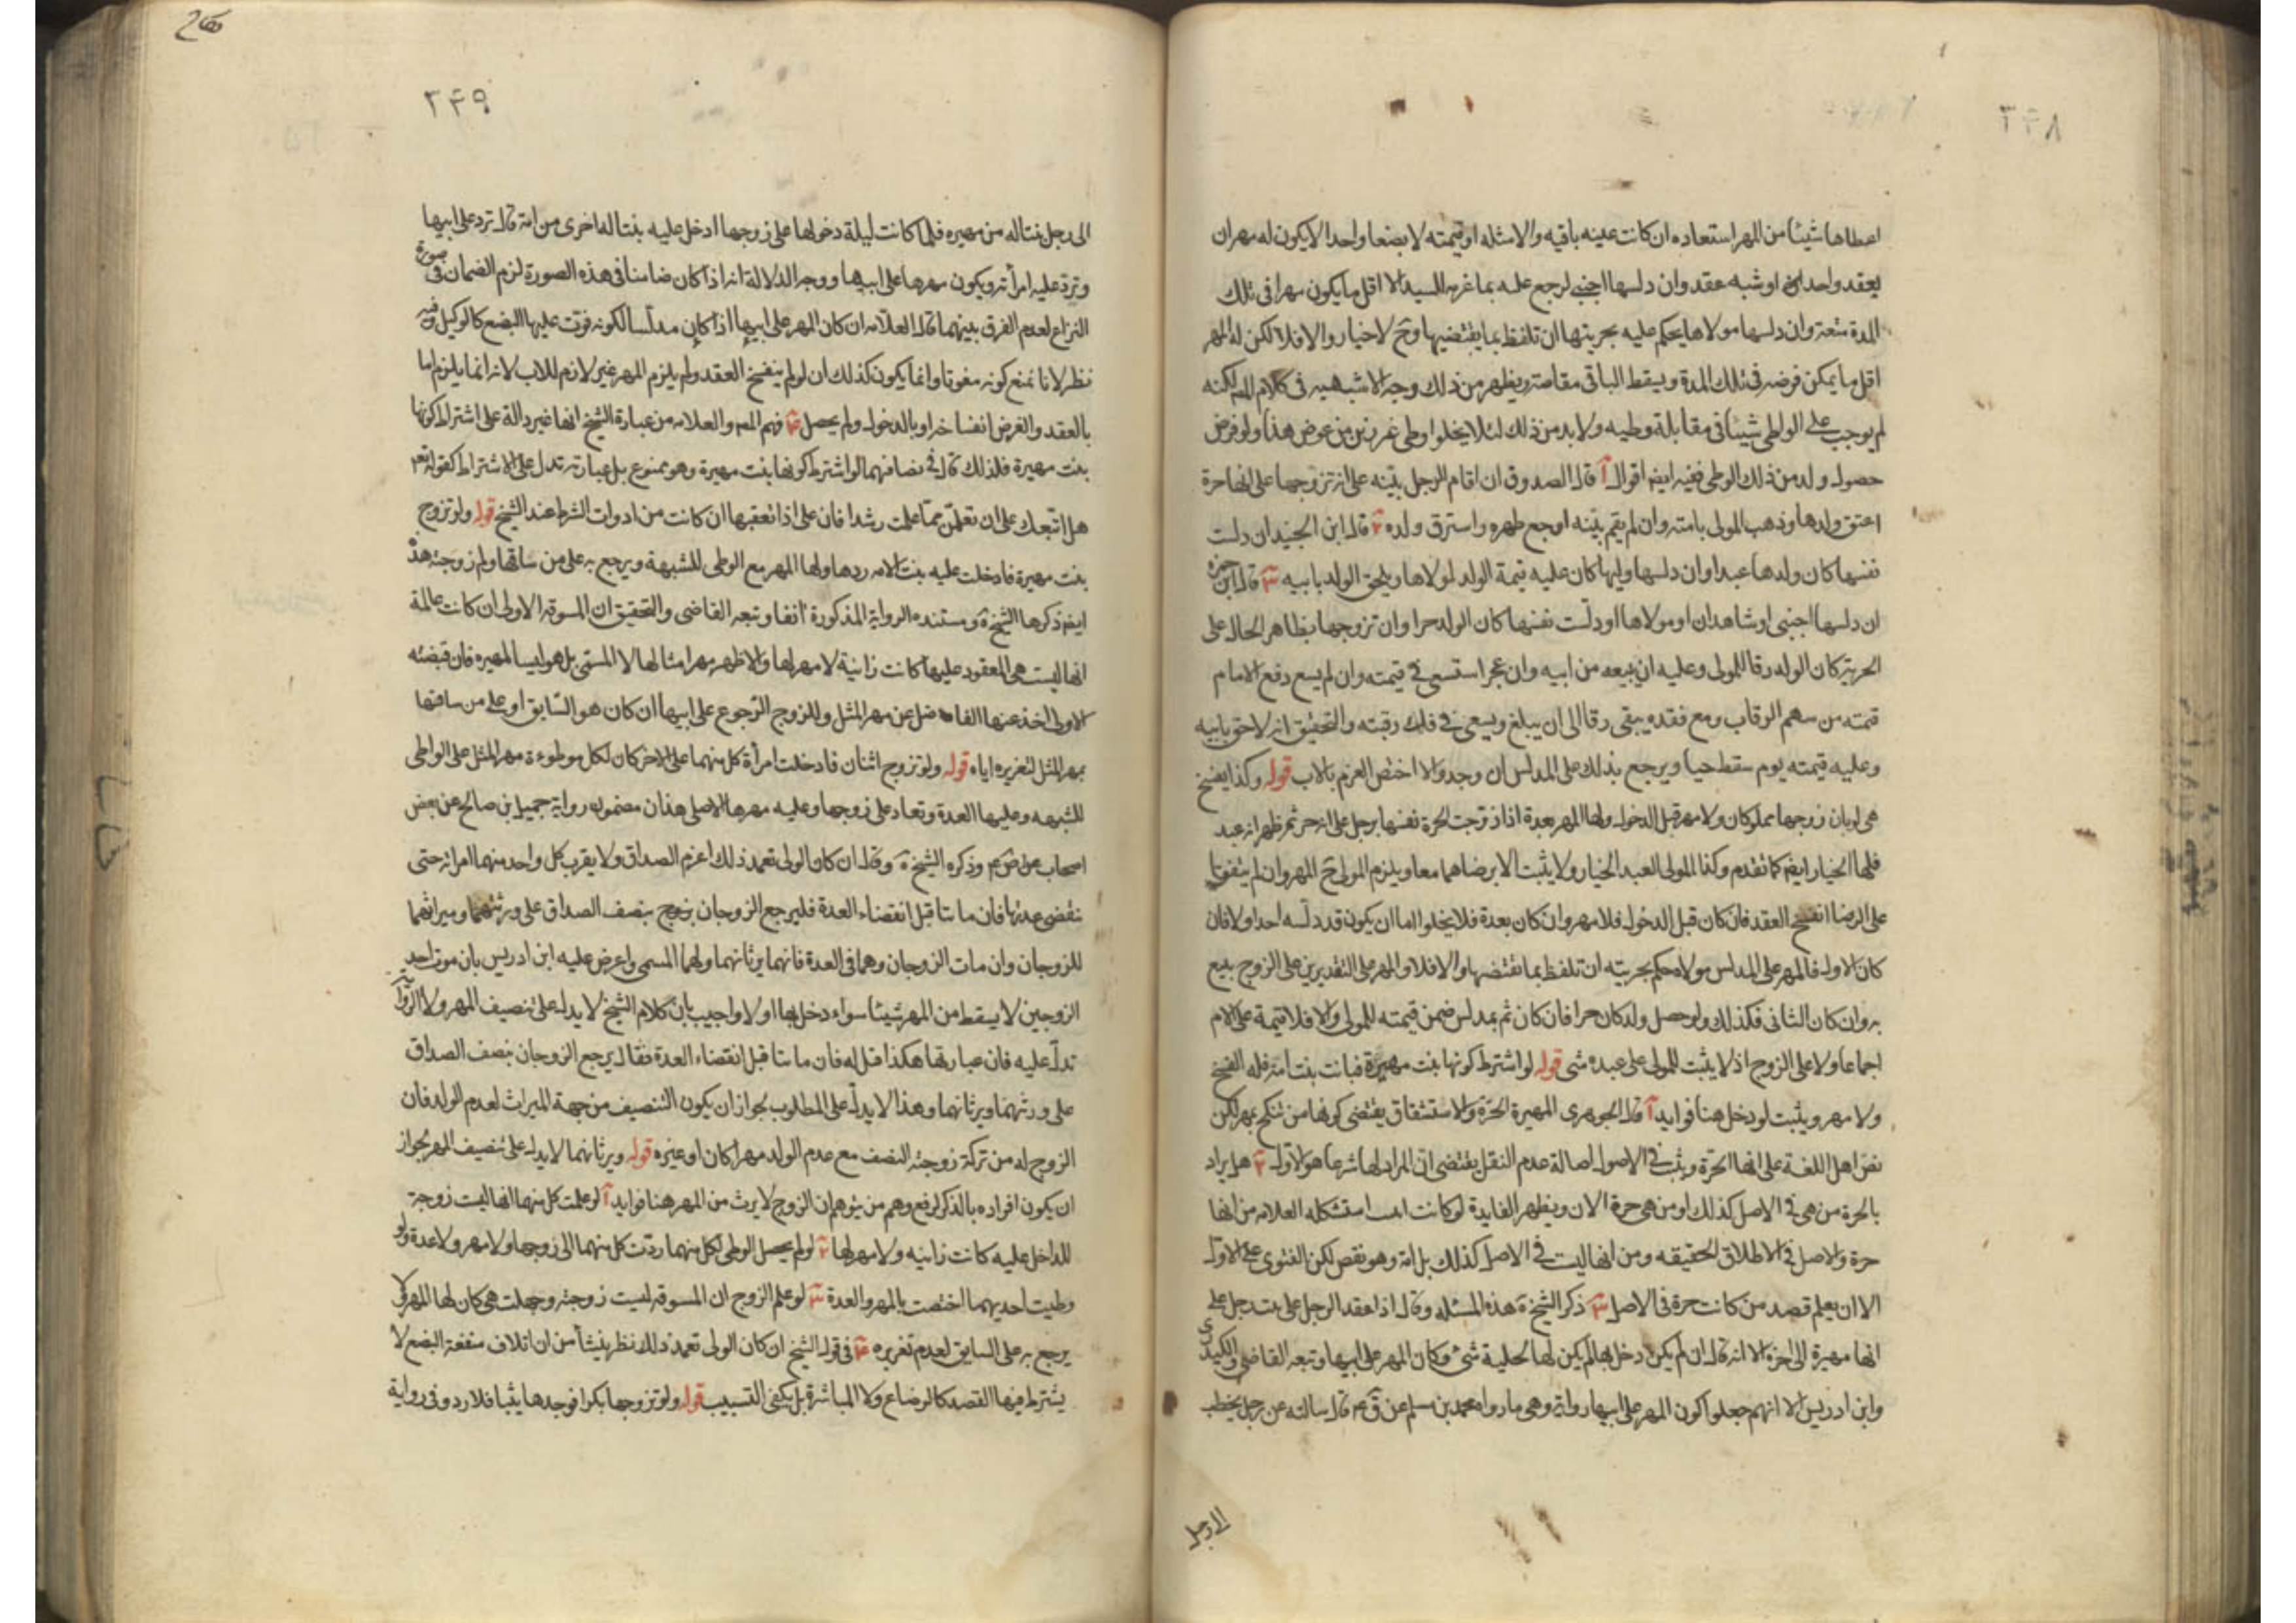 ٣۴٨
اعطاها شيئا من المهر استعاده ان كانت عينه باقيه والا مثله او قيمته لا بضعا واحدا لا يكون له مهران
بعقد واحد او شبه عقد وان دلسها اجنبى لرجع عليه بما غرمه للسيد الا اقل ما يكون مهرا فى تلك
المدة متعة وان دلسها مولاها يحكم عليه بحريتها ان تلفظ بما يقتضيها وح لا خيار والا فلا لكن له المهر
اقل ما يمكن فرضه فى تلك المدة ويسقط الباقى مقاصة ويظهر من ذلك وجه الاشبهيه فى كلام المص لكنه
لم يوجب على الواطى شيئا فى مقابلة وطيه ولا بد من ذلك لئلا يخلوا وطى غير زنى من عوض هذا ولو فرض
حصول ولد من ذلك الوطى ففيه ايضا اقوال آ قال الصدوق ان اقام الرجل بينه على انه تزوجها على انها حرة
اعتق ولدها وذهب المولى بامته وان لم يقم بينه اوجع ظهره واسترق ولده ٢ قال ابن الجنيد ان دلست
نفسها كان ولدها عبدا وان دلسها وليها كان عليه قيمة الولد لمولاها ويلحق الولد بابيه ٣ قال ابن حمزة
ان دلسها اجنبى او شاهدان او مولاها او دلست نفسها كان الولد حرا وان تزوجها بظاهر الحال على
الحرية كان الولد رقا للمولى وعليه ان يبيعه من ابيه وان عجز استسعى فى قيمته وان لم يسع دفع الامام
قيمته من سهم الرقاب ومع فقده يبقى رقا الى ان يبلغ ويسعى فى فك رقبته والتحقيق انه لاحق بابيه
وعليه قيمته يوم سقط حيا ويرجع بذلك على المدلس ان وجد والا اختص الغرم بالاب قوله وكذا يفسخ
هى لو بان زوجها مملوكان ولا مهر قبل الدخول ولها المهر بعدة اذا زوجت الحرة نفسها برجل على انه حر ثم ظهر انه عبد
فلها الخيار ايضا كما تقدم وكذا المولى العبد الخيار ولا يثبت الا برضاهما معا ويلزم المولى ح المهر وان لم يتفقوا
على الرضا انفسخ العقد فان كان قبل الدخول فلا مهر وان كان بعدة فلا يخلوا اما ان يكون قد دلسه احد او لا فان
كان الاول فالمهر على المدلس مولاه حكم بحريته ان تلفظ بما يقتضيها والا فلا والمهر على التقديرين على الزوج يتبع
به وان كان الثانى فكذلك ولو حصل ولد كان حرا فان كان ثم مدلس ضمن قيمته للمولى والا فلا قيمة على الام
اجماعا ولا على الزوج اذ لا يثبت للمولى على عبده شى قوله لو اشترط كونها بنت مهيرة فبانت بنت امة فله الفسخ
ولا مهر ويثبت لو دخل هنا فوايد آ قال الجوهرى المهيرة الحرة والاشتقاق يقتضى كونها من تنكح بمهر لكن
نص اهل اللغة على انها الحرة ويثبت فى الاصول اصالة عدم النقل يقتضى ان المراد لها شرعا هو الاول ٢ هل يراد
بالحرة من هى فى الاصل كذلك او من هى حرة الان ويظهر الفايدة لو كانت استشكله العلامه من انها
حرة والاصل فى الاطلاق الحقيقه ومن انها ليست فى الاصل كذلك بل امة وهو نقص لكن الفتوى على الاول
الا ان يعلم قصد من كانت حرة فى الاصل ٣ ذكر الشيخ ره هذه المسئله وقال اذا عقد الرجل على بنت رجل على
انها مهيرة الى اخره الا انه قال ان لم يكن دخل بها لم يكن لها لحلية شئ وكان المهر على ابيها وتبعه القاضى والكيدرى
وابن ادريس الا انهم جعلوا كون المهر على ابيها رواية وهى ما رواه محمد بن مسلم عن ق عم قال سالته عن رجل يخطب
الى رجل
٢۴٩
الى رجل بنتا له من مهيره فلما كانت ليلة دخولها على زوجها ادخل عليه بنتا له اخرى من امة قال ترد على ابيها
وترد عليه امرأته ويكون مهرها على ابيها ووجه الدلالة انه اذا كان ضامنا فى هذه الصورة لزم الضمان فى صورة
النزاع لعدم الفرق بينهما قال العلامه ان كان المهر على ابيها اذا كان مدلسا لكونه فوت عليها البضع كالوكيل وفيه
نظر لانا نمنع كونه مفوتا وانما يكون كذلك ان لو لم ينفسخ العقد ولم يلزم المهر غير لازم للاب لانه انما يلزم اما
بالعقد والفرض انفساخه او بالدخول ولم يحصل ۴ فهم المص والعلامه من عبارة الشيخ انها غير دالة على اشتراط كونها
بنت مهيرة فلذلك قالا فى لو اشترط كونها بنت مهيرة وهو ممنوع بل عبارته تدل على الاشتراط كقوله تعم
هل اتبعك على ان تعلمن مما علمت رشدا فان على اذا تعقبها ان كانت من ادوات الشرط عند الشيخ قوله ولو تزوج
بنت مهيرة فادخلت عليه بنت الامه ردها ولها المهر مع الوطى للشبهة ويرجع به على من ساقها ولم زوجته هذه
ايضا ذكرها الشيخ ره ومستنده الرواية المذكورة انفا وتبعه القاضى والتحقيق ان المسوقة الاولى ان كانت عالمة
انها ليست هى المعقود عليها كانت زانية لا مهر لها والاظهر مهر امثالها لا المسمى بل هو ايسا المهيره فان قبضته
الاولى اخذ عنها الفاضل عن مهر المثل وللزوج الرجوع على ابيها ان كان هو السابق او على من ساقها
بمهر المثل لتغريره اياه قوله ولو تزوج اثنان فادخلت امرأة كل منهما على الاخر كان لكل موطوءة مهر المثل على الواطى
للشبهه وعليها العدة وتعاد على زوجها وعليه مهرها الاصلى هذان مضمون رواية جميل ابن صالح عن بعض
اصحاب عن ص عم وذكره الشيخ ره وقال ان كان الولى تعمد ذلك اغرم الصداق ولا يقرب كل واحد منهما امراته حتى
تنقضى عدتها فان ماتتا قبل انقضاء العدة فليرجع الزوجان بنصف الصداق على ورثتهما وميراثهما
للزوجان وان مات الزوجان وهما فى العدة فانهما يرثانهما ولهما المسمى واعرض عليه ابن ادريس بان موت احد
الزوجين لا يسقط من المهر شيئا سواء دخل بها او لا واجيب بان كلام الشيخ لا يدل على تنصيف المهر ولا الرواية
تدل عليه فان عبارتها هكذا قيل له فان ماتتا قبل انقضاء العدة فقال يرجع الزوجان بنصف الصداق
على ورثتهما ويرثانهما وهذا لا يدل على المطلوب لجواز ان يكون التنصيف من جهة الميراث لعدم الولد فان
الزوج له من تركة زوجته النصف مع عدم الولد مهرا كان او غيره قوله ويرثانهما لا يدل على تنصيف المهر لجواز
ان يكون افراده بالذكر لرفع وهم من يتوهم ان الزوج لا يرث من المهر هنا فوايد آ لو علمت كل منهما انها ليست زوجة
للداخل عليه كانت زانيه ولا مهر لها ٢ لو لم يحصل الوطى لكل منهما ردت كل منهما الى زوجها ولا مهر ولا عدة ولو
وطيت احديهما اختصت بالمهر والعدة ٣ لو علم الزوج ان المسوقه ليست زوجته وجهلت هى كان لها المهر ولا
يرجع به على السايق لعدم تغريره ۴ فى قول الشيخ ان كان الولى تعمد ذلك نظر ينشأ من ان اتلاف منفعة البضع لا
يشترط فيها القصد كالرضاع ولا المباشرة بل يكفى التسبيب قوله ولو تزوجها بكرا فوجدها ثيبا فلا رد وفى رواية